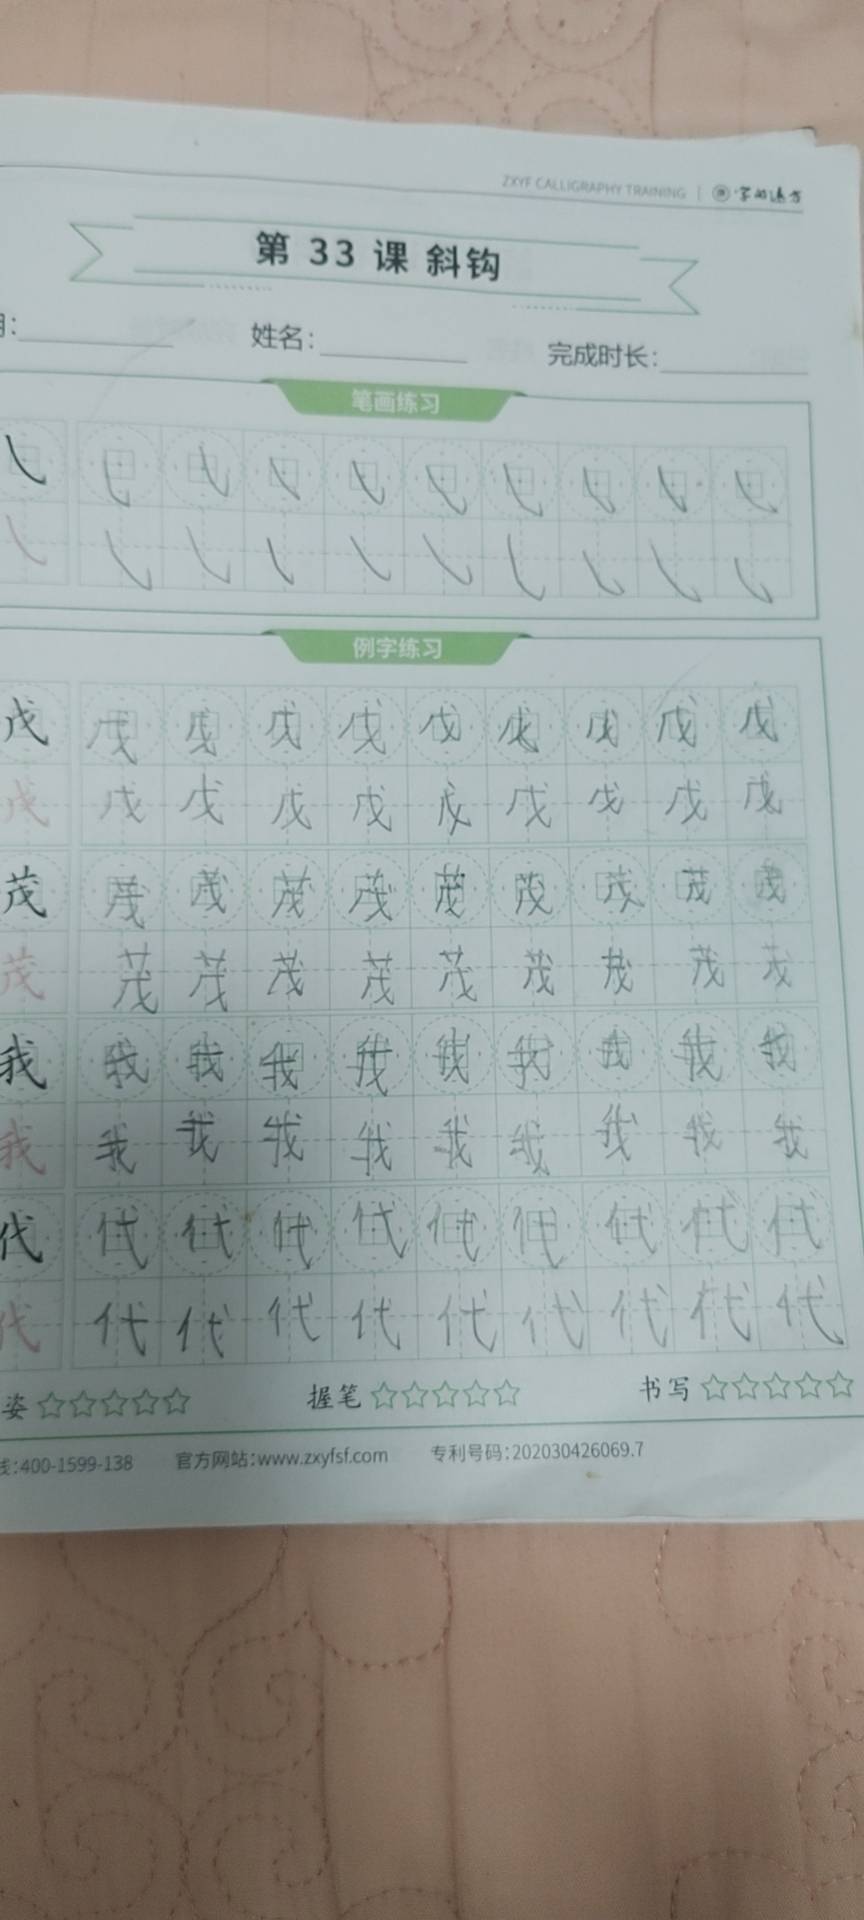 ZXYF CALLIGRAPHY TRAINING
第 33 课 斜钩
姓名：
完成时长：
笔画练习
例字练习
戊 戊 戊 戊 戊 戊 戊 戊 戊 戊
戊 戊 戊 戊 戊 戊 戊 戊 戊 戊
茂 茂 茂 茂 茂 茂 茂 茂 茂 茂
茂 茂 茂 茂 茂 茂 茂 茂 茂 茂
我 我 我 我 我 我 我 我 我 我
我 我 我 我 我 我 我 我 我 我
代 代 代 代 代 代 代 代 代 代
代 代 代 代 代 代 代 代 代 代
姿 握笔 书写
线：400-1599-138 官方网站：www.zxyfsf.com 专利号码：202030426069.7